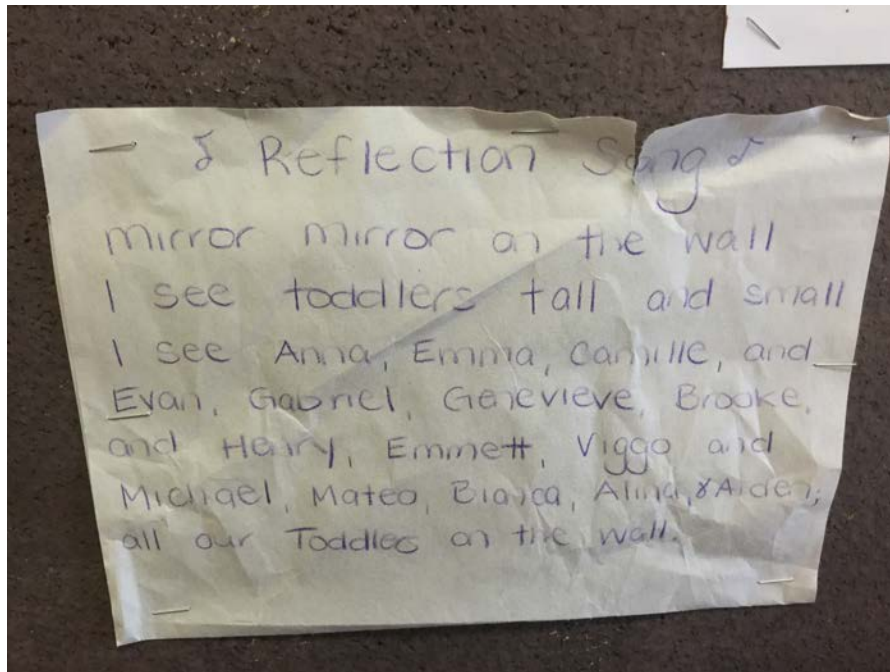 ♪ Reflection Song ♪
mirror mirror on the wall
I see toddlers tall and small
I see Anna, Emma, Camille, and
Evan, Gabriel, Genevieve, Brooke,
and Henry, Emmett, Viggo and
Michael, Mateo, Bianca, Alina, & Aiden;
all our Toddles on the wall.